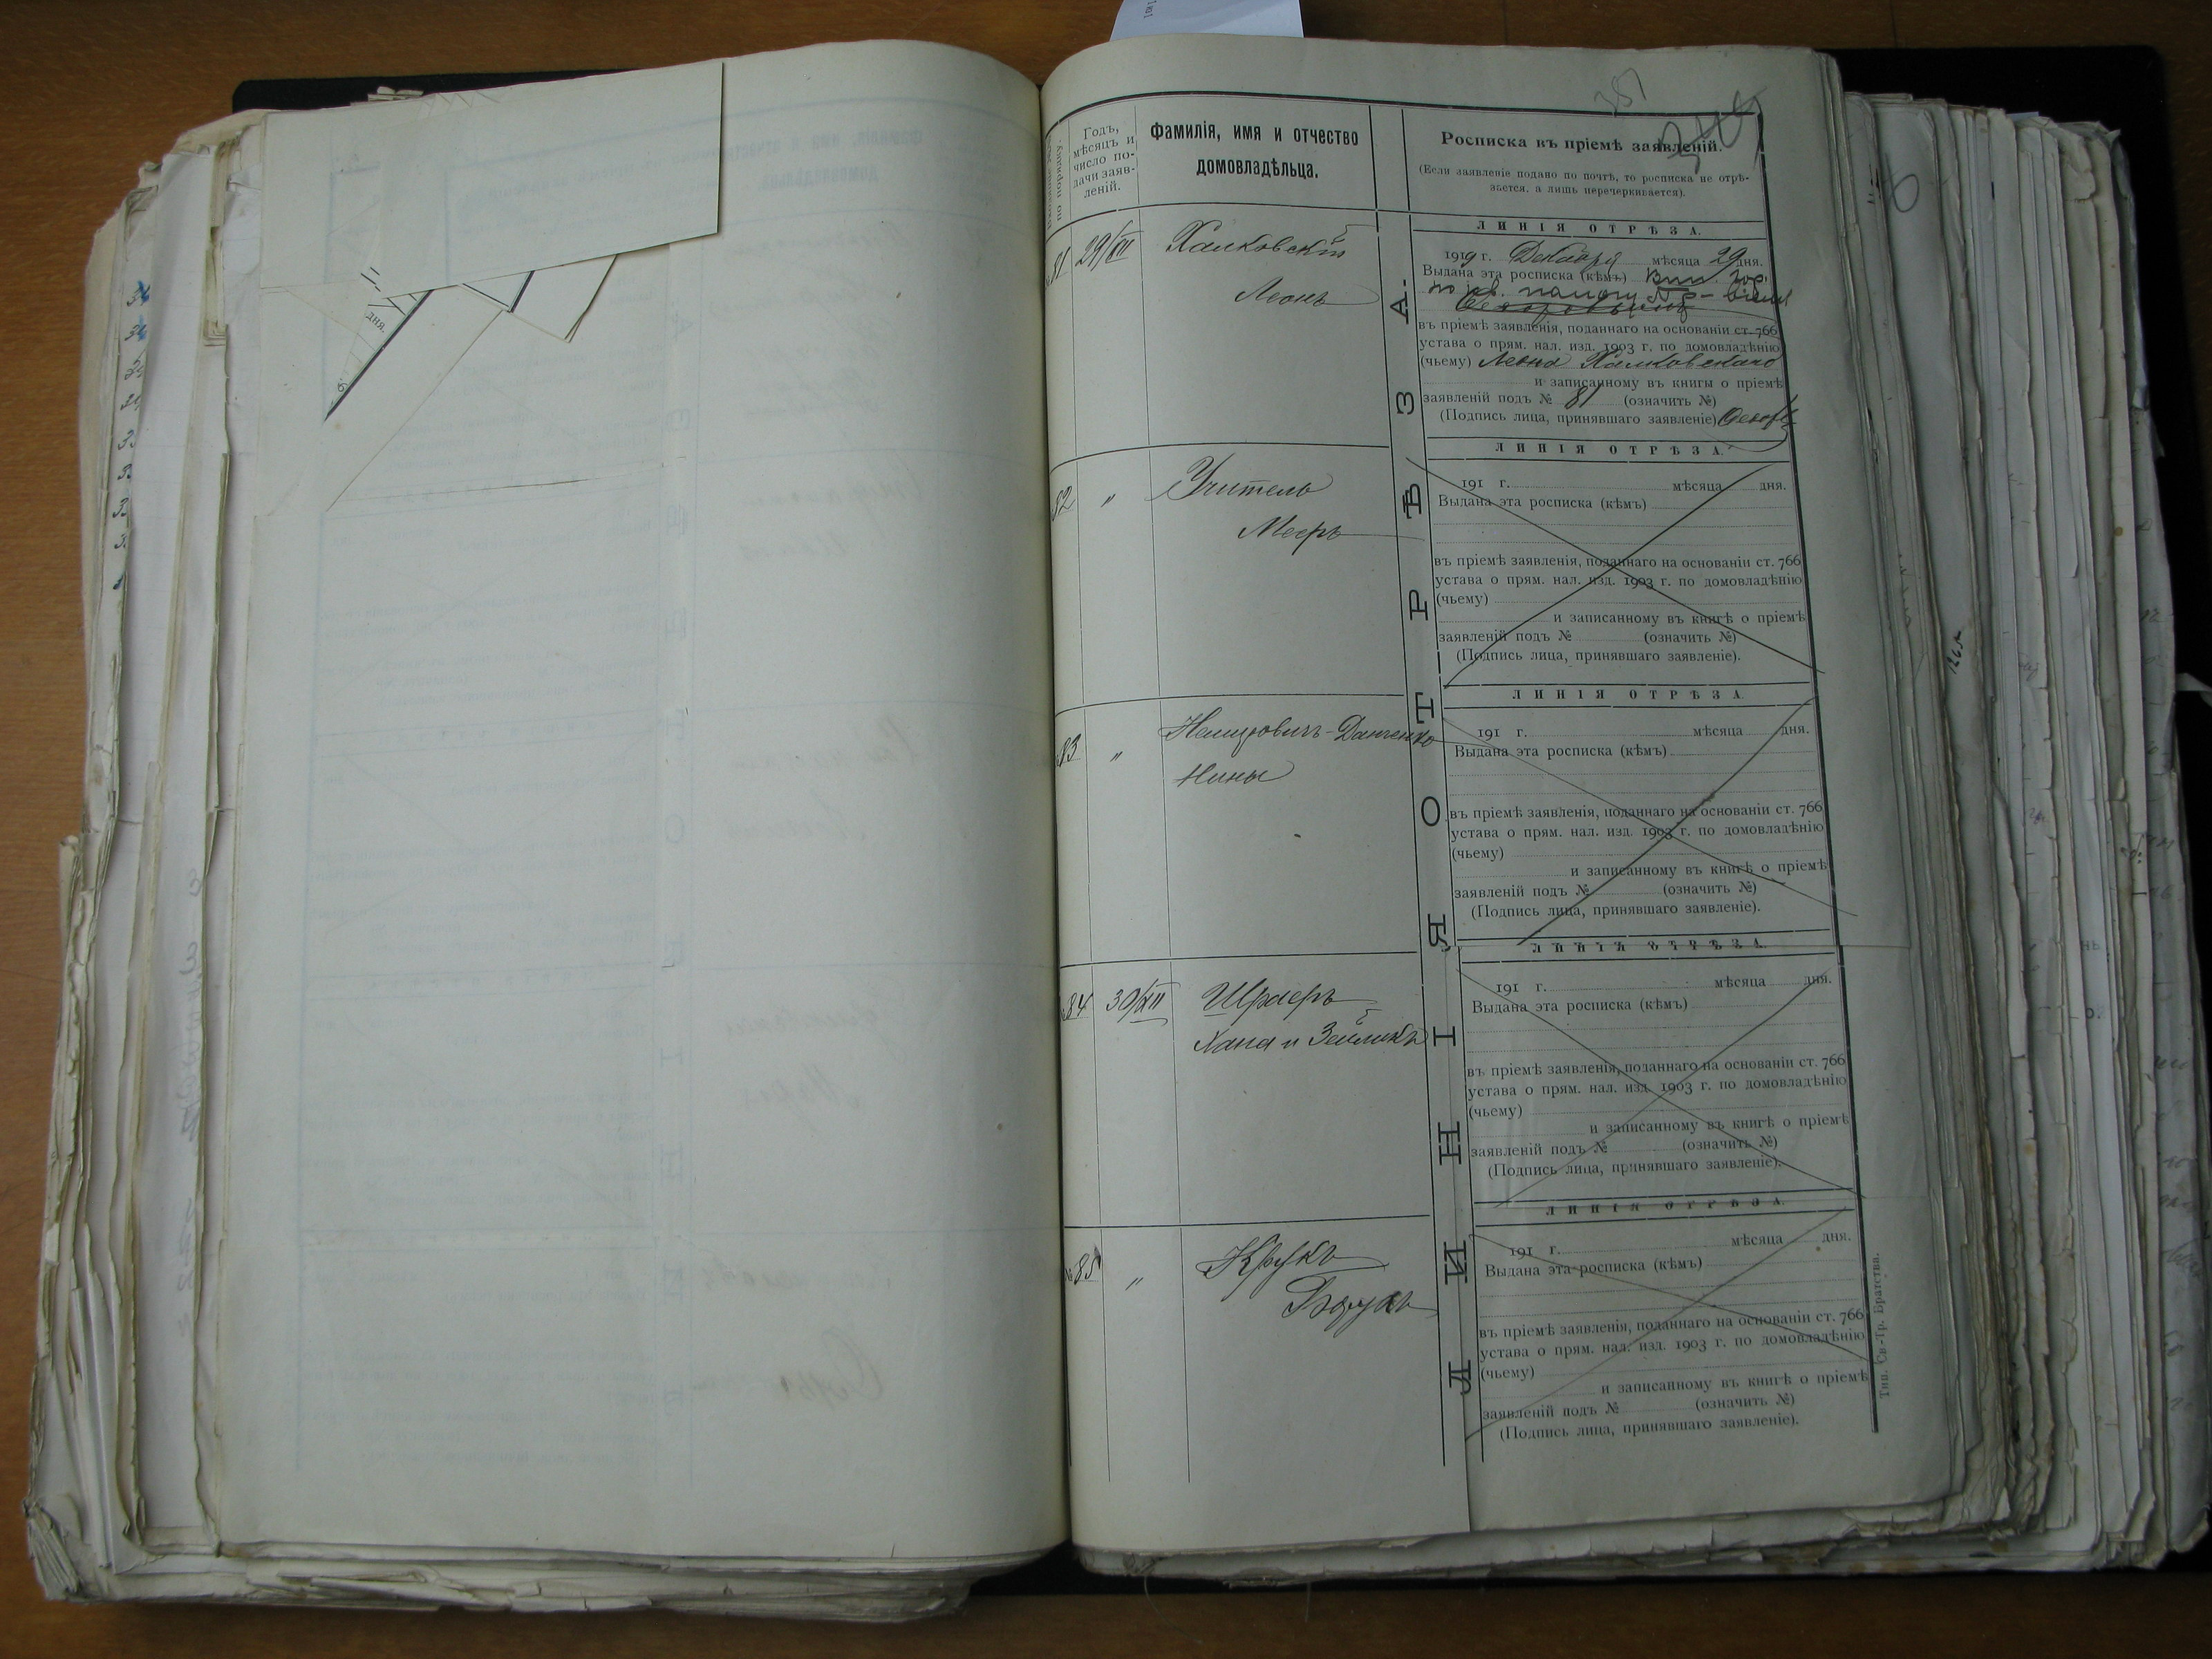 381
Годъ,
мѣсяцъ и
число по-
дачи заяв-
леній.
по порядку.
Фамилія, имя и отчество
домовладѣльца.
Росписка въ пріемѣ заявленій.
(Если заявленіе подано по почтѣ, то росписка не отрѣ-
зается, а лишь перечеркивается).
ЛИНІЯ ОТРѢЗА.
81
29/XII
Халковскій
Леонъ
1919 г. Декабря мѣсяца 29 дня.
Выдана эта росписка (кѣмъ)
въ пріемѣ заявленія, поданнаго на основаніи ст. 766
устава о прям. нал. изд. 1903 г. по домовладѣнію
(чьему) Леона Халковскаго
и записанному въ книгы о пріемѣ
заявленій подъ № 81 (означить №)
(Подпись лица, принявшаго заявленіе)
ЛИНІЯ ОТРѢЗА.
82
"
Учитель
Мееръ
191 г. мѣсяца дня.
Выдана эта росписка (кѣмъ)
въ пріемѣ заявленія, поданнаго на основаніи ст. 766
устава о прям. нал. изд. 1903 г. по домовладѣнію
(чьему)
и записанному въ книгѣ о пріемѣ
заявленій подъ № (означить №)
(Подпись лица, принявшаго заявленіе).
ЛИНІЯ ОТРѢЗА.
83
"
Немировичъ-Данченко
Нины
191 г. мѣсяца дня.
Выдана эта росписка (кѣмъ)
въ пріемѣ заявленія, поданнаго на основаніи ст. 766
устава о прям. нал. изд. 1903 г. по домовладѣнію
(чьему)
и записанному въ книгѣ о пріемѣ
заявленій подъ № (означить №)
(Подпись лица, принявшаго заявленіе).
ЛИНІЯ ОТРѢЗА.
84
30/XII
Шраеръ
Хана и Зейликъ
191 г. мѣсяца дня.
Выдана эта росписка (кѣмъ)
въ пріемѣ заявленія, поданнаго на основаніи ст. 766
устава о прям. нал. изд. 1903 г. по домовладѣнію
(чьему)
и записанному въ книгѣ о пріемѣ
заявленій подъ № (означить №)
(Подпись лица, принявшаго заявленіе).
ЛИНІЯ ОТРѢЗА.
85
"
Крукъ
Борухъ
191 г. мѣсяца дня.
Выдана эта росписка (кѣмъ)
въ пріемѣ заявленія, поданнаго на основаніи ст. 766
устава о прям. нал. изд. 1903 г. по домовладѣнію
(чьему)
и записанному въ книгѣ о пріемѣ
заявленій подъ № (означить №)
(Подпись лица, принявшаго заявленіе).
ЛИНІЯ ОТРѢЗА.
Тип. Св.-Тр. Братства.
дня.